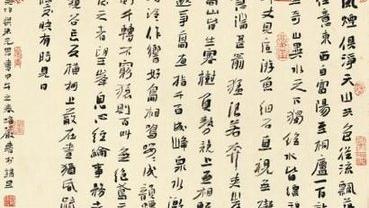 風煙俱淨天山共色從流飄
任意東西自富陽至桐廬一百
奇山異水天下獨絕水皆縹
千丈見底游魚細石直視無
甚箭猛浪若奔夾岸
高山皆生寒樹負勢競上互相軒
邈爭高直指千百成峰泉水激
泠作響好鳥相鳴嚶嚶成韻
則千轉不窮猿則百叫無絕鳶
天者望峰息心經綸世務者
窺谷忘反橫柯上蔽在晝猶昏疏
映有時見日